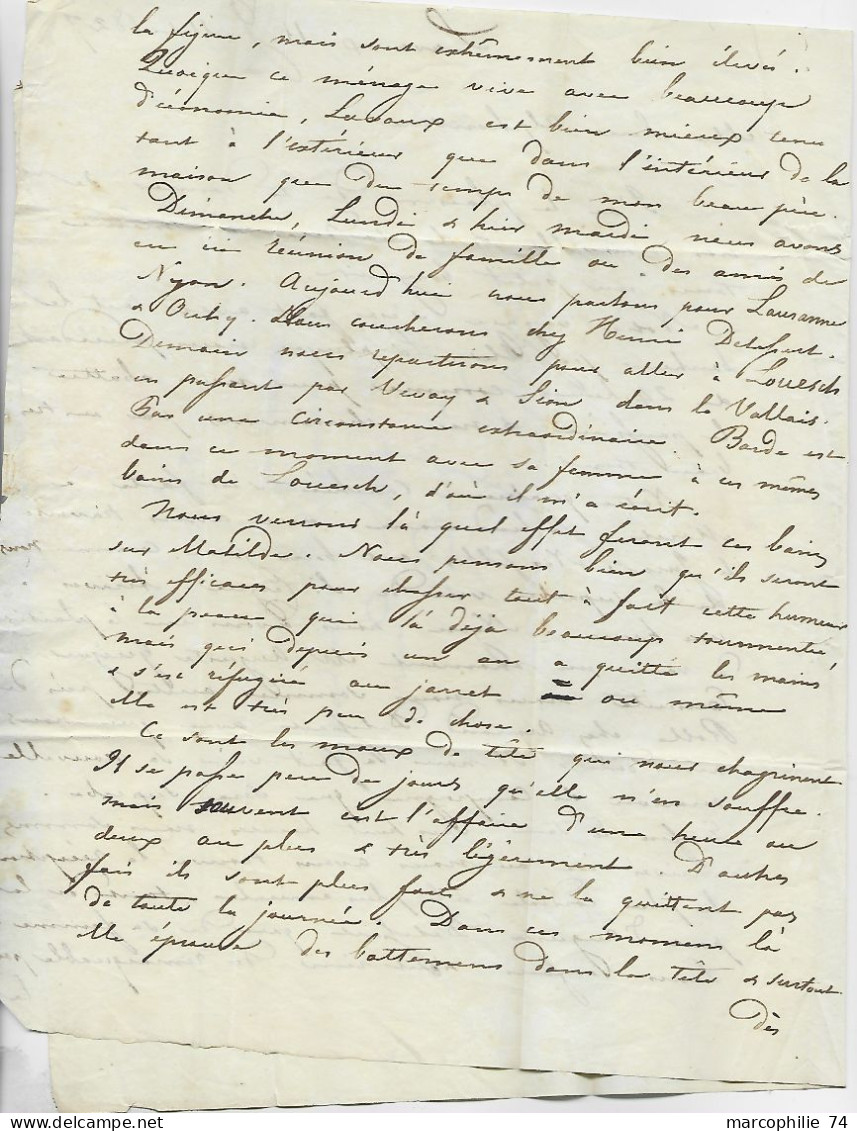 la figure, mais sont extrêmement bien élevés.
Quoique ce ménage vive avec beaucoup
d'économie, Lavaux est bien mieux tenu
tant à l'extérieur que dans l'intérieur de la
maison que du temps de mon beau père.
Dimanche, Lundi & hier mardi nous avons
eu ici réunion de famille ou des amis de
Nyon. Aujourd'hui nous partons pour Lausanne
& Ouchy. Nous coucherons chez Henri
Demain nous repartirons pour aller à Louesch
en passant par Vevay & Sion dans le Vallais.
Par une circonstance extraordinaire. Barde est
dans ce moment avec sa femme à ces mêmes
bains de Louesch, d'où il m'a écrit.
Nous verrons là quel effet feront ces bains
sur Matilde. Nous pensons bien qu'ils seront
très efficaces pour chasser tout à fait cette humeur
à la peau qui l'a déjà beaucoup tourmentée
mais qui depuis un an a quitté les mains
& s'est réfugiée au jarret ou même
elle est très peu de chose.
Ce sont les maux de tête qui nous chagrinent
Il se passe peu de jours qu'elle n'en souffre.
mais souvent c'est l'affaire d'une heure ou
deux au plus & très légèrement. D'autres
fois ils sont plus forts & ne la quittent pas
de toute la journée. Dans ces momens là
elle éprouve des battemens dans la tête & surtout
dès
marcophilie 74